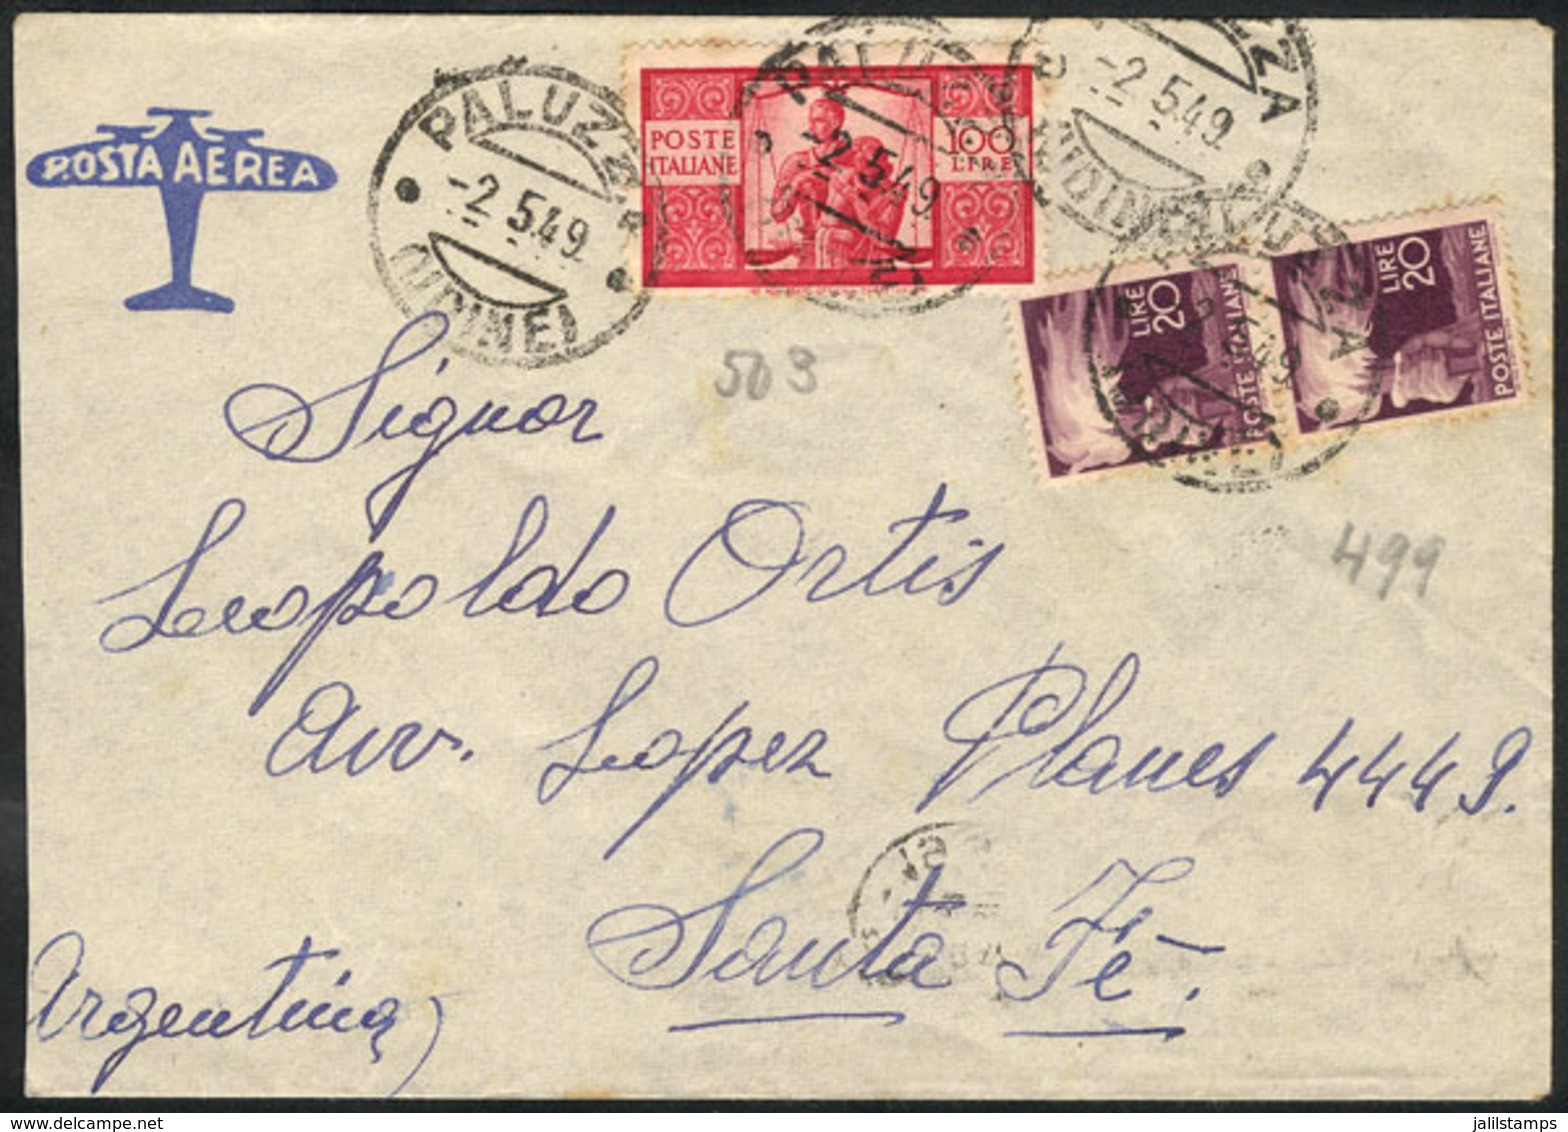 POSTA AEREA
PALUZZA
-2.5.49
(UDINE)
POSTE
ITALIANE
100
LIRE
PALUZ
-2.5.49
ZZA
-2.5.49
(UDINE)
LIRE
20
POSTE ITALIANE
LIRE
20
POSTE ITALIANE
503
499
Signor
Leopoldo Ortis
Avv. Lopez Planes 4449.
Santa Fé.
Argentina)
jalilstamps
delcampe.net